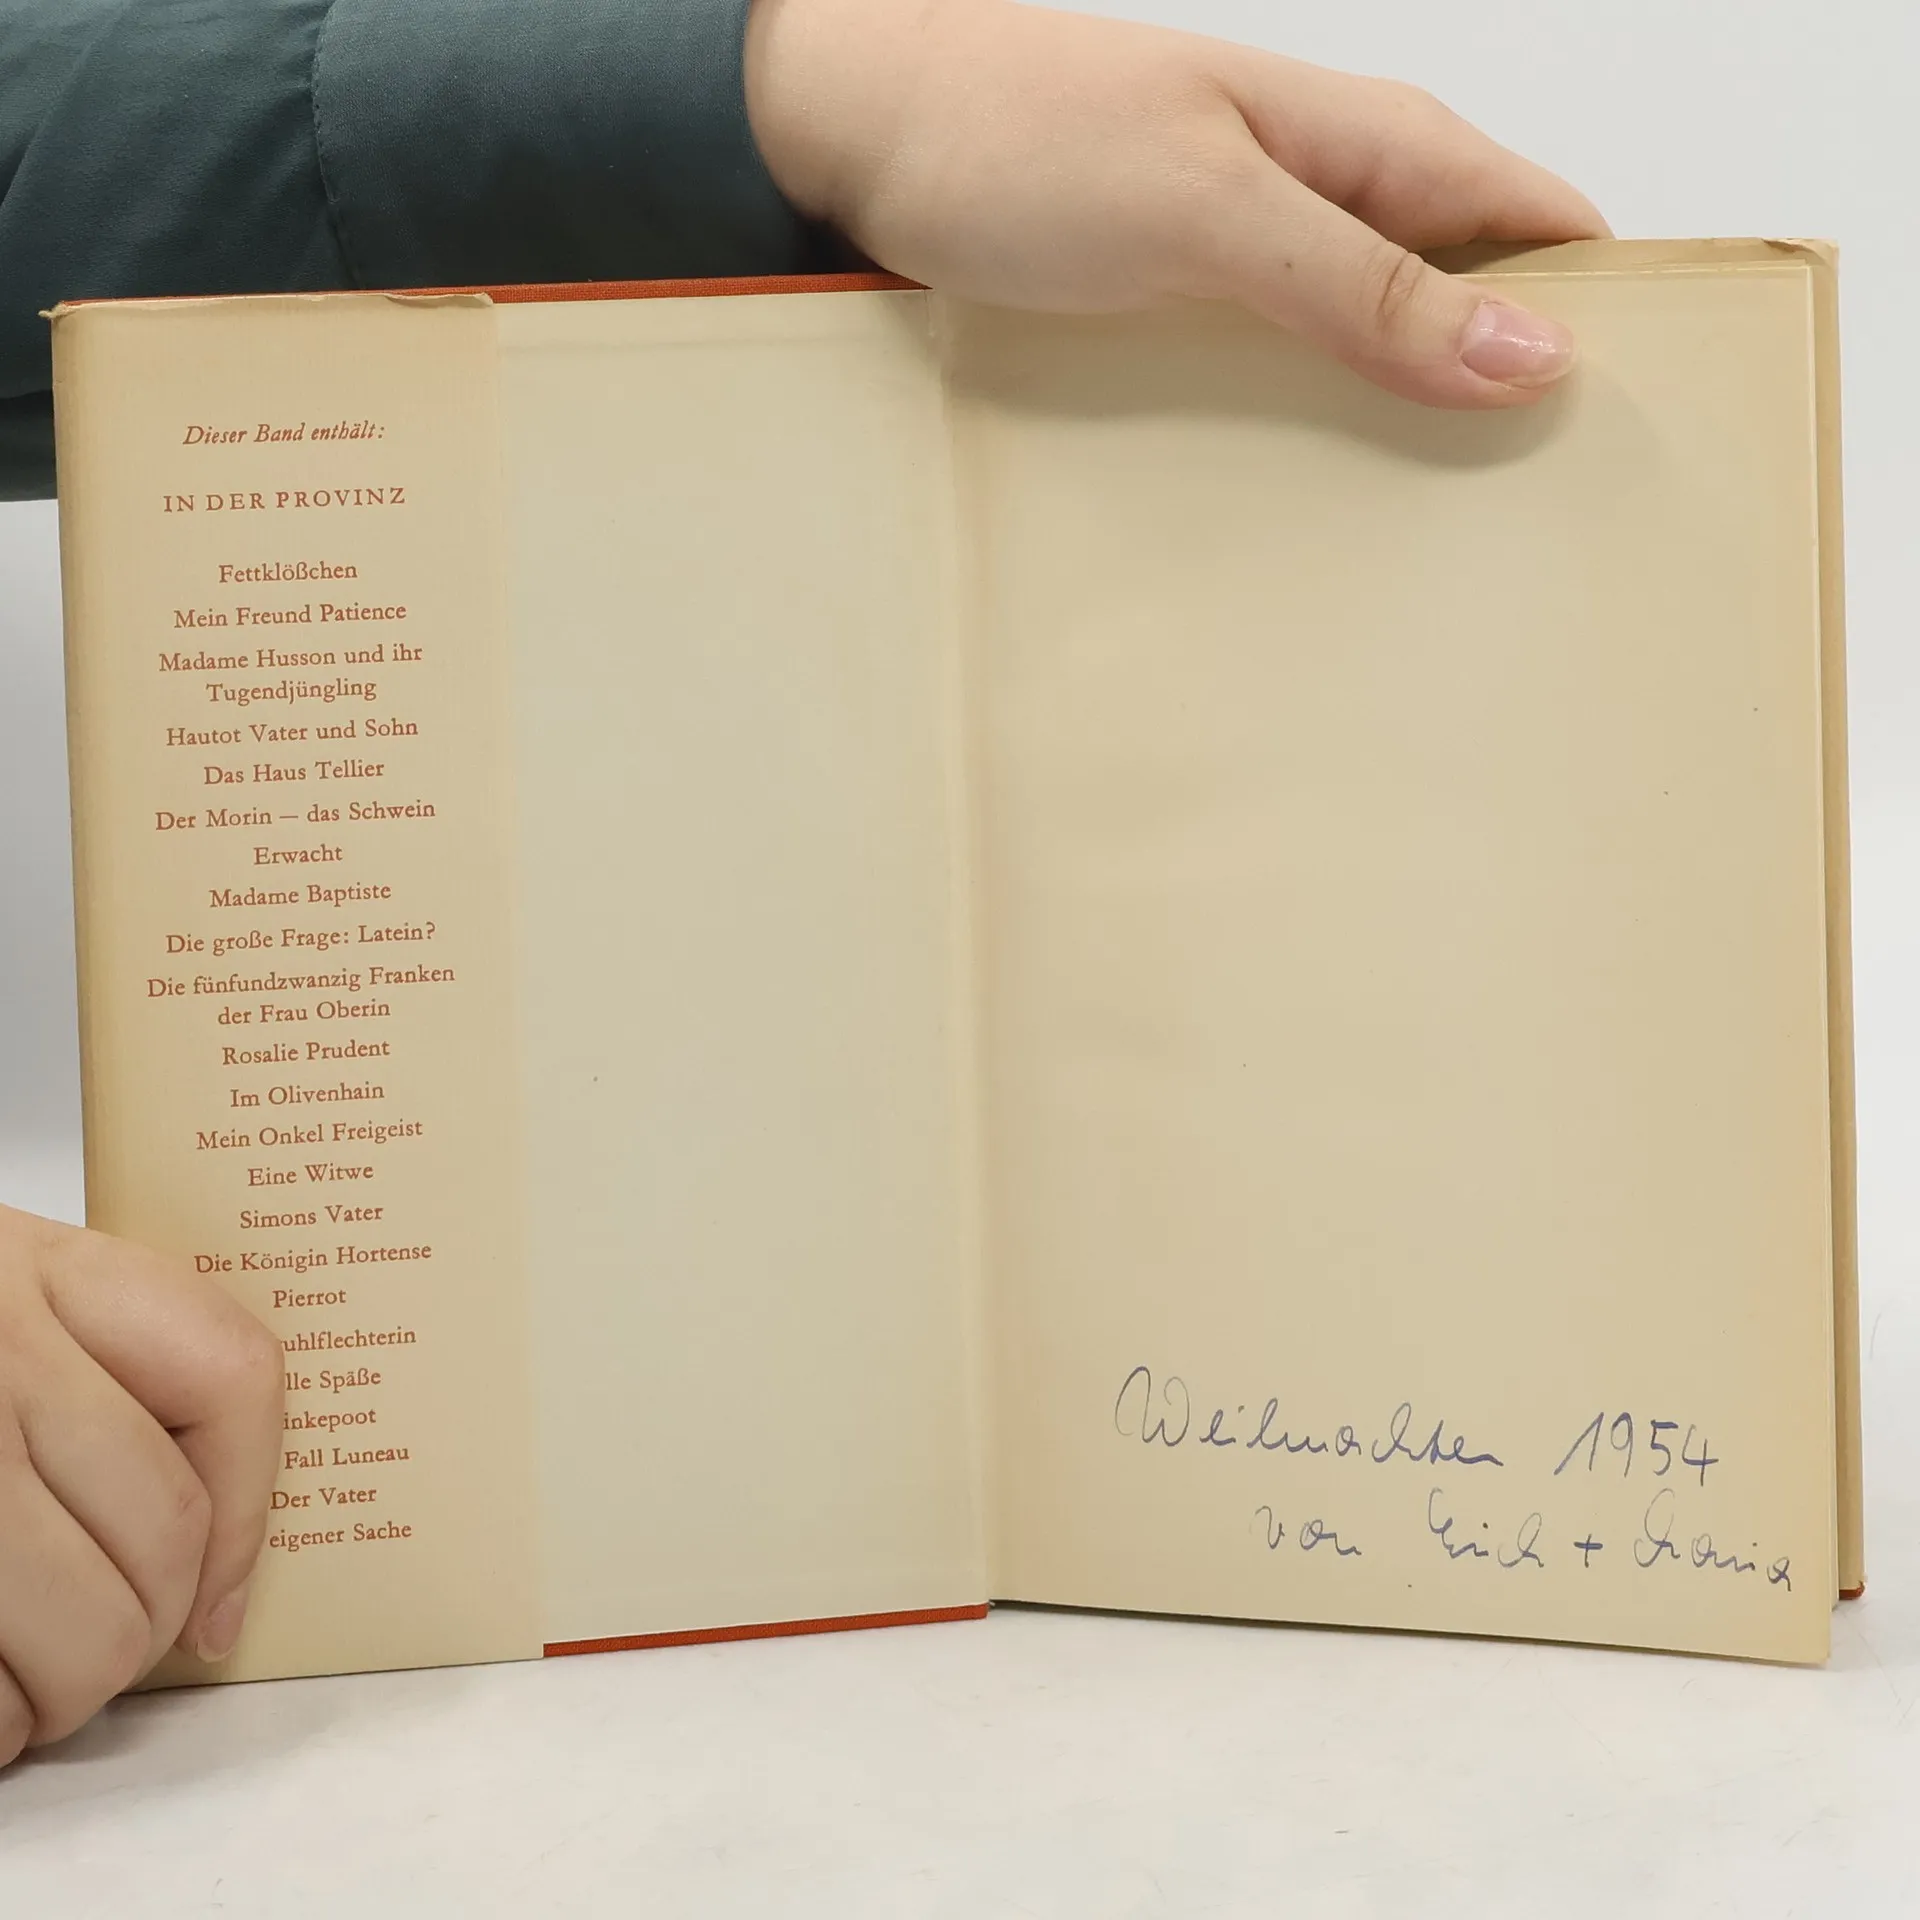 Dieser Band enthält:
IN DER PROVINZ
Fettklößchen
Mein Freund Patience
Madame Husson und ihr
Tugendjüngling
Hautot Vater und Sohn
Das Haus Tellier
Der Morin — das Schwein
Erwacht
Madame Baptiste
Die große Frage: Latein?
Die fünfundzwanzig Franken
der Frau Oberin
Rosalie Prudent
Im Olivenhain
Mein Onkel Freigeist
Eine Witwe
Simons Vater
Die Königin Hortense
Pierrot
uhlflechterin
lle Späße
inkepoot
Fall Luneau
Der Vater
eigener Sache
Weihnachten 1954
von Erich +